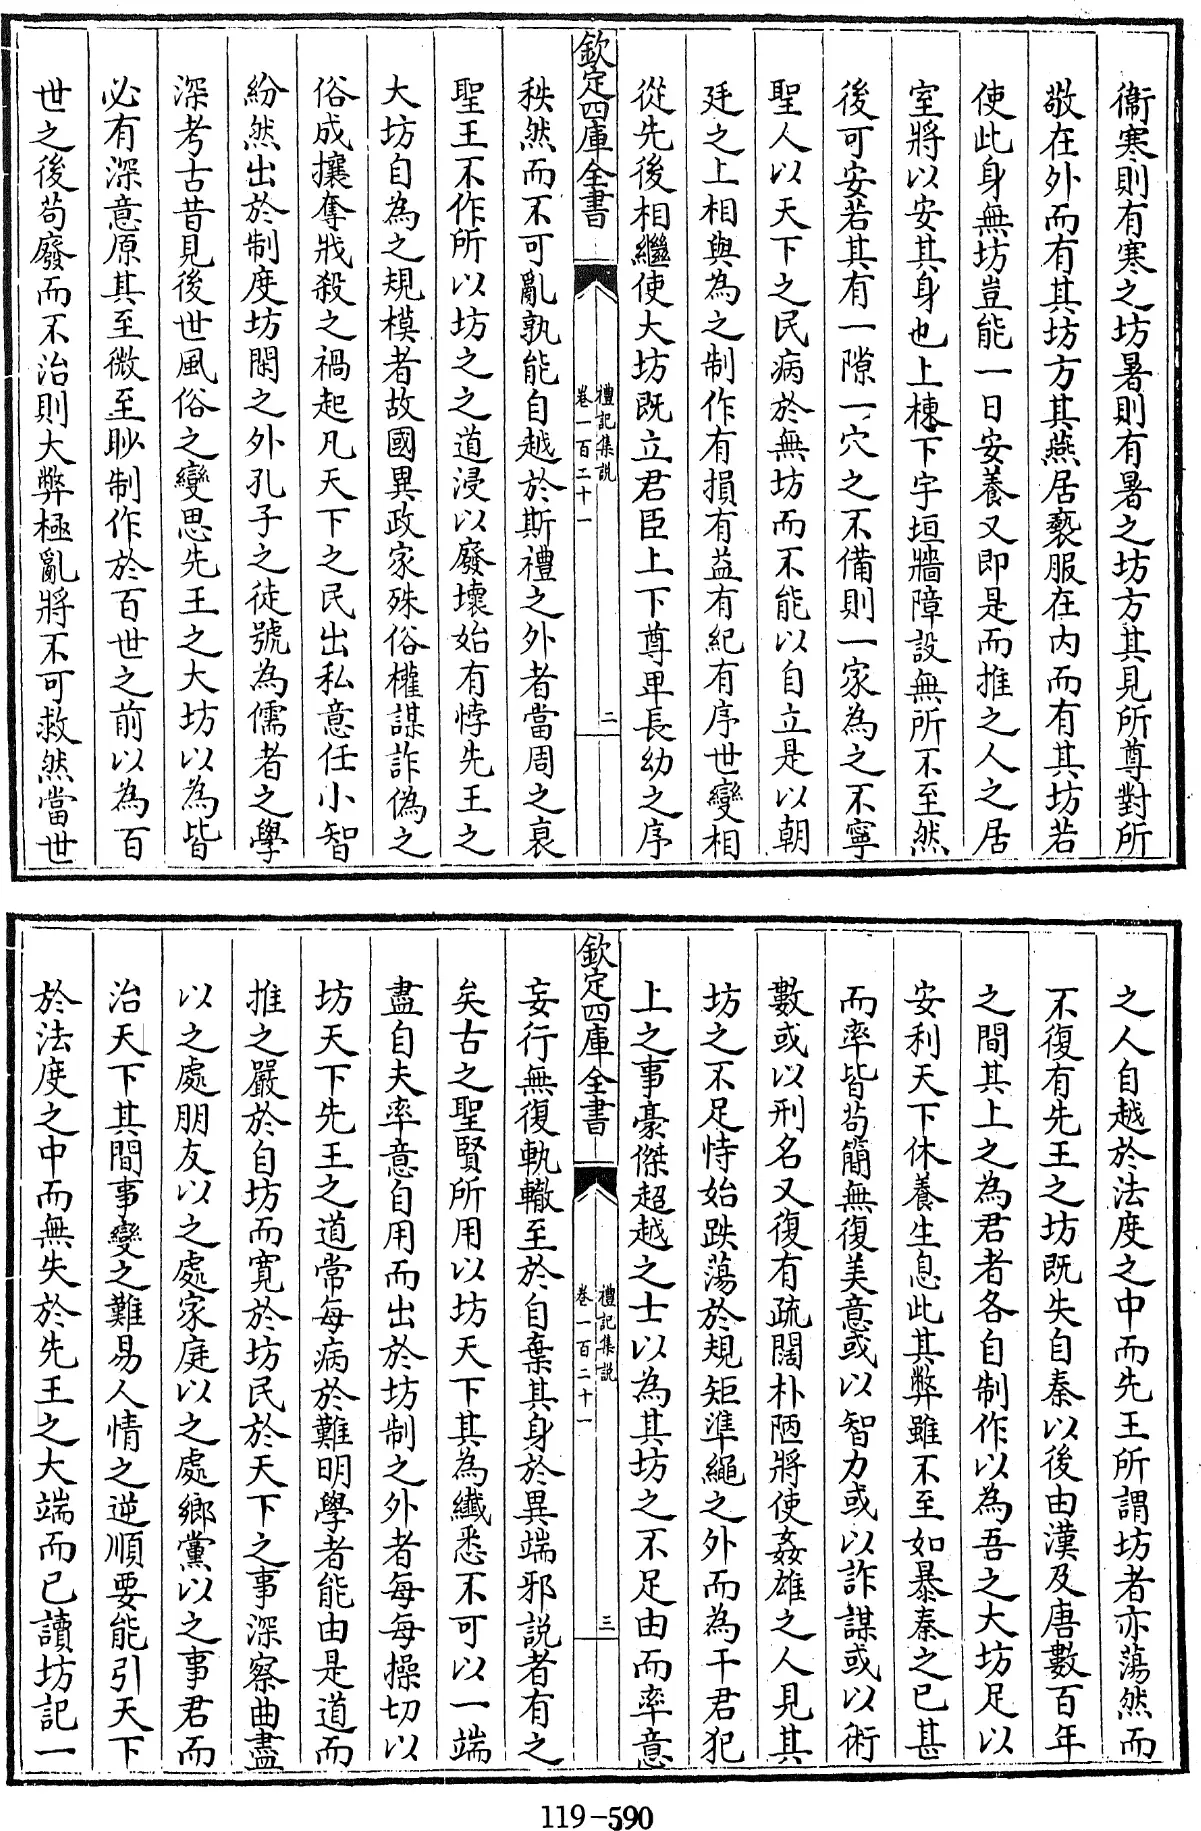 衞寒則有寒之坊暑則有暑之坊方其見所尊對所
敬在外而有其坊方其燕居褻服在内而有其坊若
使此身無坊豈能一日安養又即是而推之人之居
室將以安其身也上棟下宇垣牆障設無所不至然
後可安若其有一隙一穴之不備則一家為之不寧
聖人以天下之民病於無坊而不能以自立是以朝
廷之上相與為之制作有損有益有紀有序世變相
從先後相繼使大坊既立君臣上下尊卑長幼之序
欽定四庫全書
禮記集説
卷一百二十一
二
秩然而不可亂孰能自越於斯禮之外者當周之衰
聖王不作所以坊之之道浸以廢壞始有悖先王之
大坊自為之規模者故國異政家殊俗權謀詐偽之
俗成攘奪戕殺之禍起凡天下之民出私意任小智
紛然出於制度坊閑之外孔子之徒號為儒者之學
深考古昔見後世風俗之變思先王之大坊以為皆
必有深意原其至微至眇制作於百世之前以為百
世之後苟廢而不治則大弊極亂將不可救然當世
之人自越於法度之中而先王所謂坊者亦蕩然而
不復有先王之坊既失自秦以後由漢及唐數百年
之間其上之為君者各自制作以為吾之大坊足以
安利天下休養生息此其弊雖不至如暴秦之已甚
而率皆苟簡無復美意或以智力或以詐謀或以術
數或以刑名又復有疏闊朴陋將使姦雄之人見其
坊之不足恃始跌蕩於規矩準繩之外而為干君犯
上之事豪傑超越之士以為其坊之不足由而率意
欽定四庫全書
禮記集説
卷一百二十一
三
妄行無復軌轍至於自棄其身於異端邪説者有之
矣古之聖賢所用以坊天下其為纖悉不可以一端
盡自夫率意自用而出於坊制之外者每每操切以
坊天下先王之道常每病於難明學者能由是道而
推之嚴於自坊而寛於坊民於天下之事深察曲盡
以之處朋友以之處家庭以之處鄉黨以之事君而
治天下其間事變之難易人情之逆順要能引天下
於法度之中而無失於先王之大端而已讀坊記一
119-590